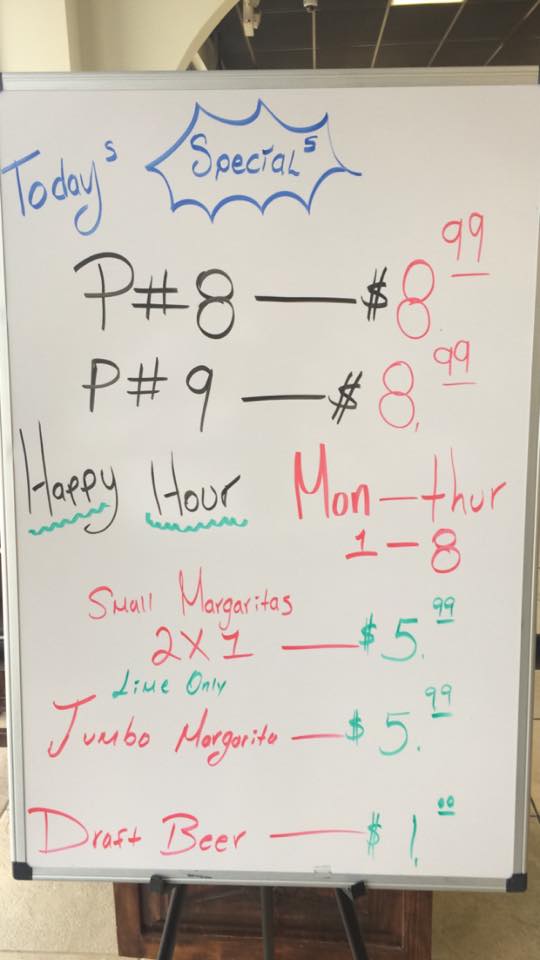 Today's Specials
P#8 — $8.99
P#9 — $8.99
Happy Hour Mon — thur
1 — 8
Small Margaritas
2X1 — $5.99
Lime Only
Jumbo Margarita — $5.99
Draft Beer — $1.00